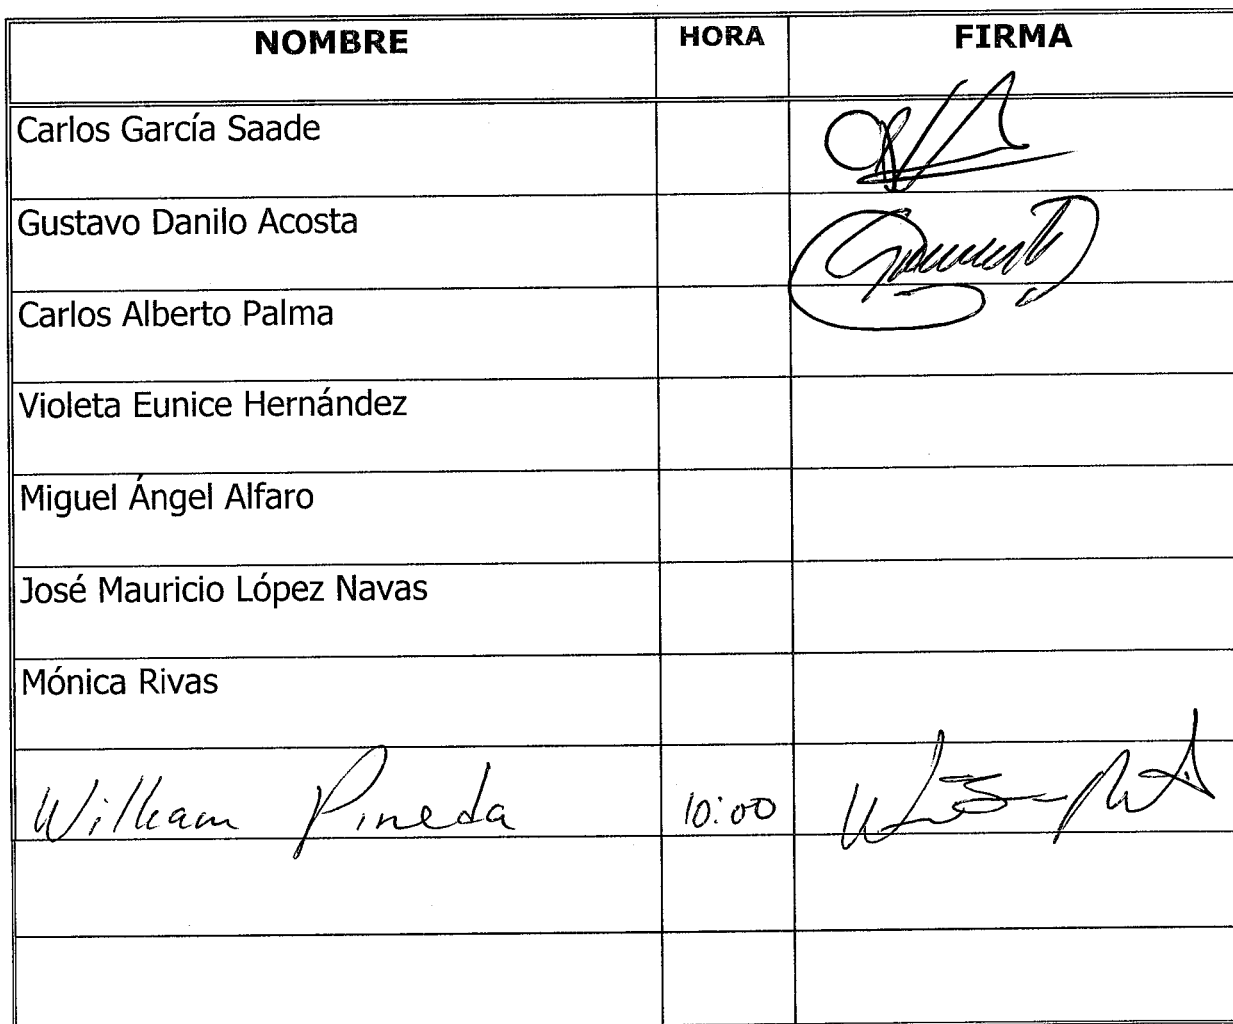 NOMBRE HORA FIRMA
Carlos García Saade
Gustavo Danilo Acosta
Carlos Alberto Palma
Violeta Eunice Hernández
Miguel Ángel Alfaro
José Mauricio López Navas
Mónica Rivas
William Pineda 10:00